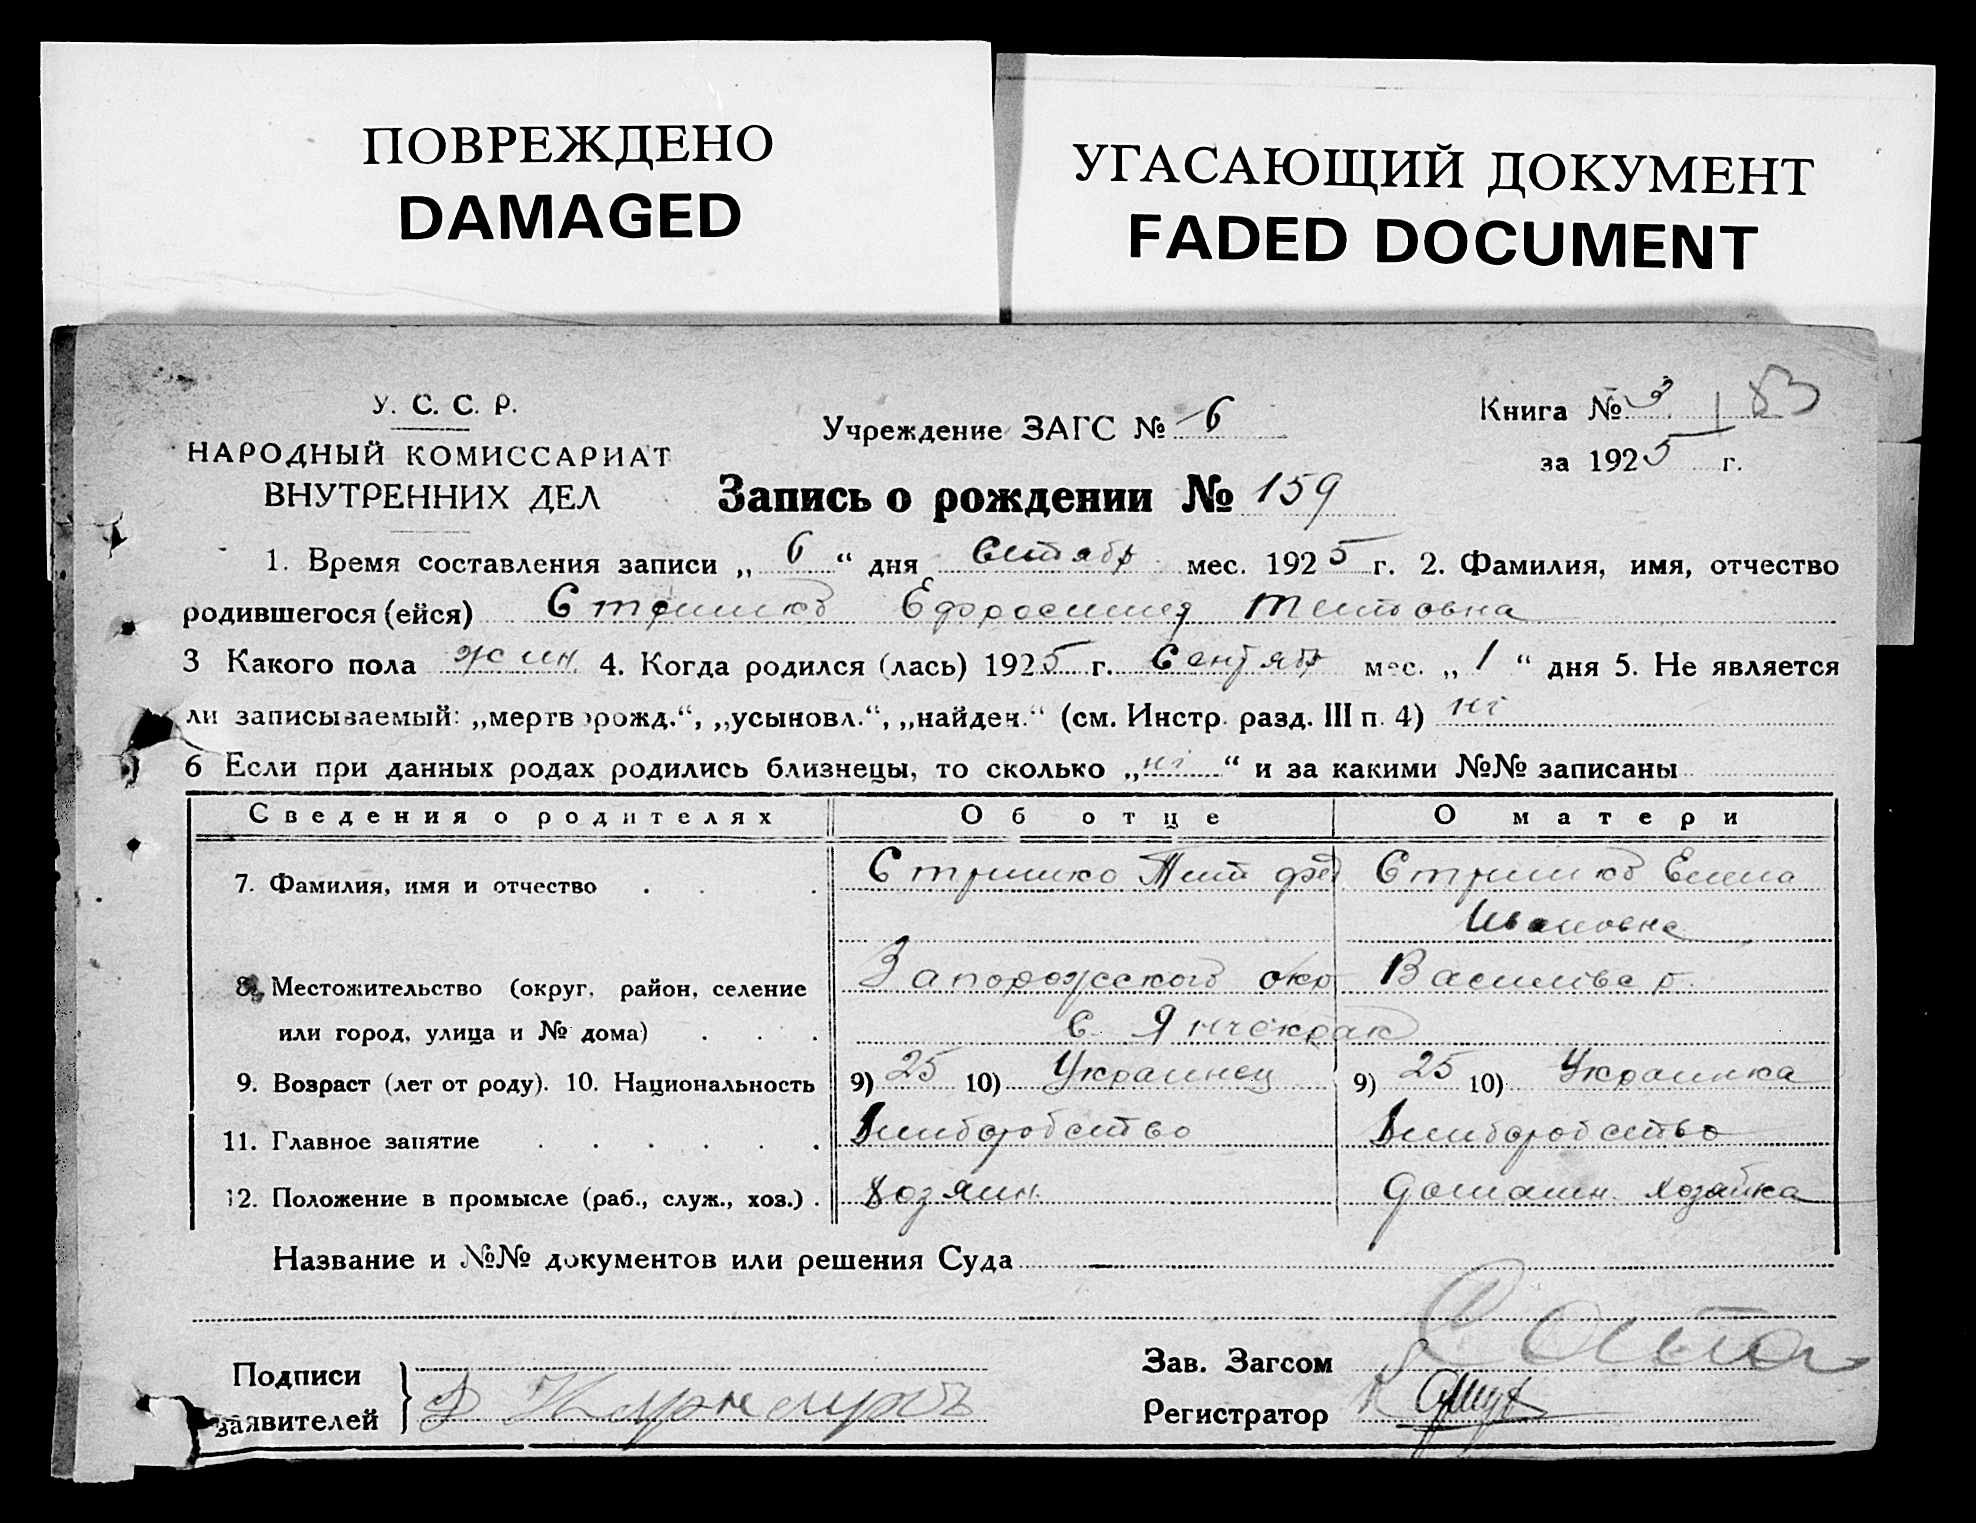 ПОВРЕЖДЕНО
DAMAGED
УГАСАЮЩИЙ ДОКУМЕНТ
FADED DOCUMENT
У. С. С. Р.
НАРОДНЫЙ КОМИССАРИАТ
ВНУТРЕННИХ ДЕЛ
Учреждение ЗАГС № 6
Книга № 3 183
за 1925 г.
Запись о рождении № 159
1. Время составления записи „ 6 “ дня Сентябр мес. 1925 г. 2. Фамилия, имя, отчество
родившегося (ейся) Стришко Ефросиния Титовна
3 Какого пола жін. 4. Когда родился (лась) 1925 г. Сентябр мес. „ 1 “ дня 5. Не является
ли записываемый: „мертворожд.“, „усыновл.“, „найден.“ (см. Инстр. разд. III п. 4) ні
6 Если при данных родах родились близнецы, то сколько „ ні “ и за какими №№ записаны
Сведения о родителях Об отце О матери
7. Фамилия, имя и отчество . . . Стришко Тит Фед Стришко Елена
Ивановна
8. Местожительство (округ, район, селение Запорожского окр Василівс р.
или город, улица и № дома) . . . с. Янчекрак
9. Возраст (лет от роду). 10. Национальность 9) 25 10) Украинец 9) 25 10) Украинка
11. Главное занятие . . . . . . Хлиборобство Хлиборобство
12. Положение в промысле (раб., служ., хоз.) . Хозяин. домашн. хозяйка
Название и №№ документов или решения Суда —
Подписи
заявителей
Зав. Загсом
Регистратор